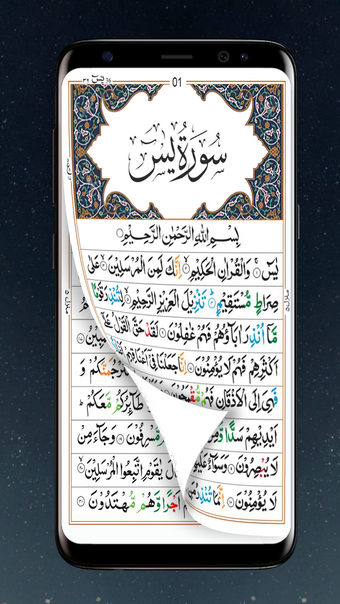 يٰسٓ ٣٦ 36
01
سُوْرَةُ يٰسٓ
بِسْمِ اللّٰهِ الرَّحْمٰنِ الرَّحِيْمِ
يٰسٓ ۚ وَالْقُرْاٰنِ الْحَكِيْمِ ۙ اِنَّكَ لَمِنَ الْمُرْسَلِيْنَ ۙ عَلٰى
صِرَاطٍ مُّسْتَقِيْمٍ ؕ تَنْزِيْلَ الْعَزِيْزِ الرَّحِيْمِ ۙ لِتُنْذِرَ قَوْمًا
مَّاۤ اُنْذِرَ اٰبَآؤُهُمْ فَهُمْ غٰفِلُوْنَ لَقَدْ حَقَّ الْقَوْلُ عَلٰۤى
اَكْثَرِهِمْ فَهُمْ لَا يُؤْمِنُوْنَ اِنَّا جَعَلْنَا فِيْۤ
فَهِيَ اِلَى الْاَذْقَانِ فَهُمْ طَآئِرُكُمْ مَّعَكُمْ
اَيْدِيْهِمْ سَدًّا مُّسْرِفُوْنَ وَجَآءَ مِنْ
لَا يُبْصِرُوْنَ وَسَوَآءٌ يٰقَوْمِ اتَّبِعُوا الْمُرْسَلِيْنَ
لَا يُؤْمِنُوْنَ اِنَّمَا تُنْذِرُ اَجْرًا وَّهُمْ مُّهْتَدُوْنَ